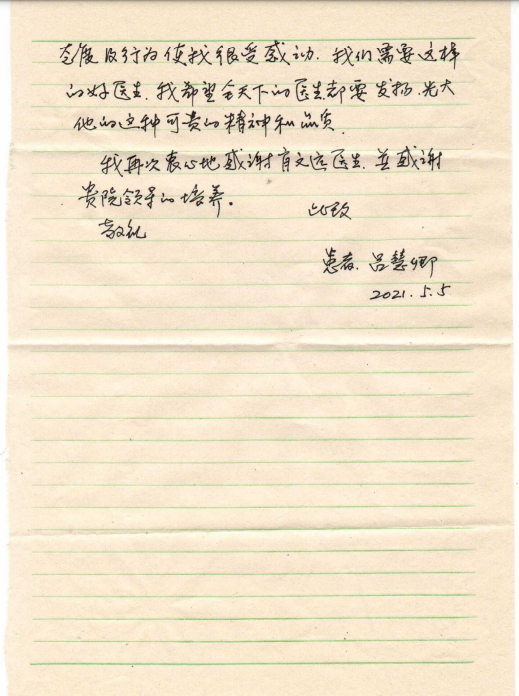 态度及行为使我很受感动。我们需要这样
的好医生。我希望全天下的医生都要发扬光大
他的这种可贵的精神和品质。
我再次衷心地感谢育文远医生 並感谢
贵院领导的培养。
此致
敬礼
患者 吕慧卿
2021.5.5